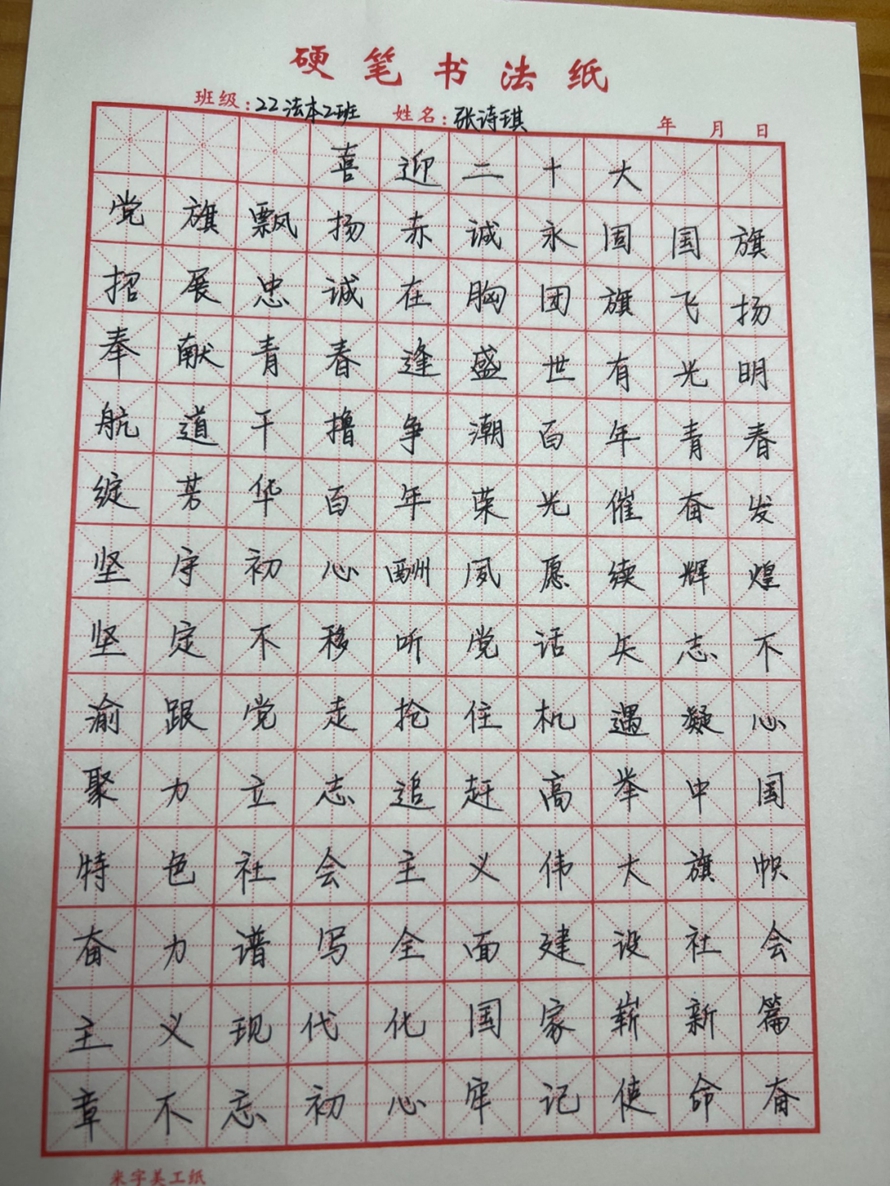 硬笔书法纸
班级:22法本2班 姓名:张诗琪 年 月 日
喜迎二十大
党旗飘扬赤诚永固国旗
招展忠诚在胸团旗飞扬
奉献青春逢盛世有光明
航道干撸争潮百年青春
绽芳华百年荣光催奋发
坚守初心酬夙愿续辉煌
坚定不移听党话矢志不
渝跟党走抢住机遇凝心
聚力立志追赶高举中国
特色社会主义伟大旗帜
奋力谱写全面建设社会
主义现代化国家崭新篇
章不忘初心牢记使命奋
米字美工纸